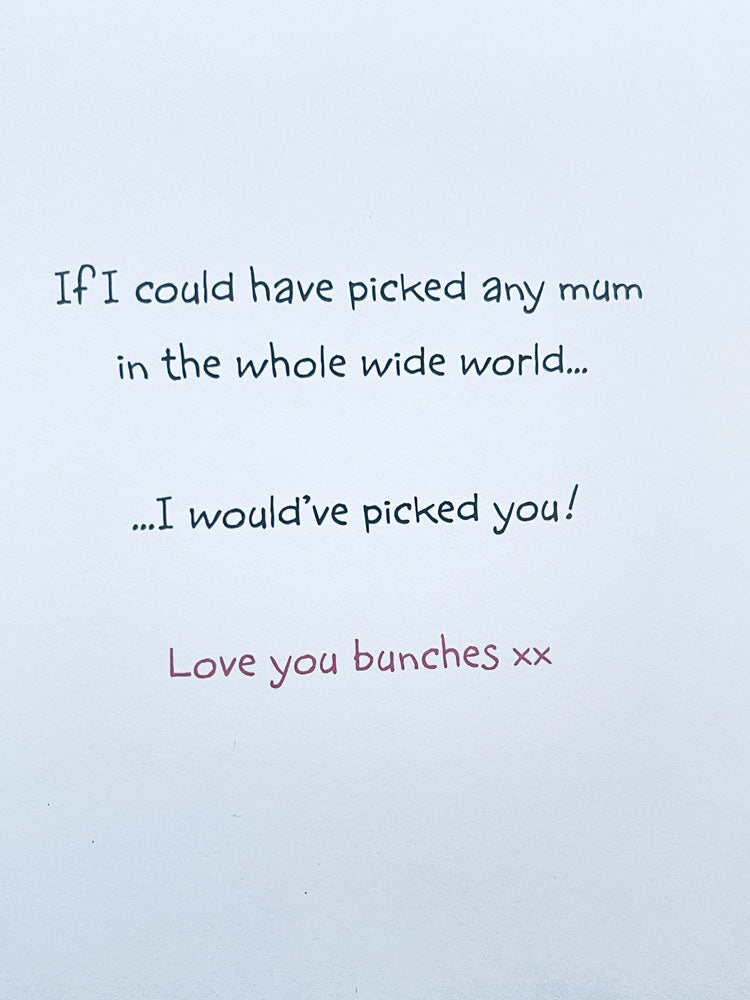 If I could have picked any mum
in the whole wide world...
...I would've picked you!
Love you bunches xx